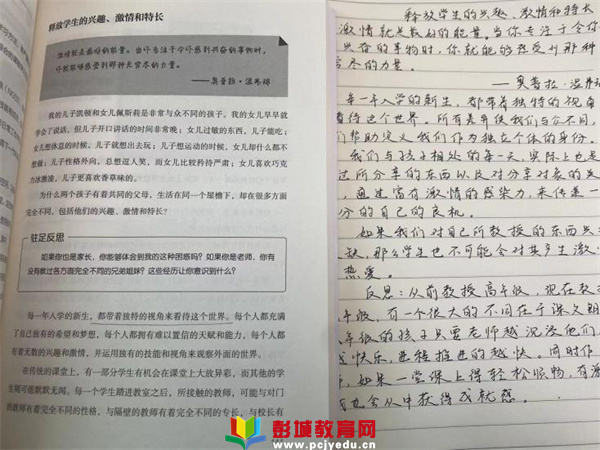 释放学生的兴趣、激情和特长
激情就是最好的能量。当你专注于令你感到兴奋的事物时，
你就能够感受到那种无穷尽的力量。
——奥普拉·温弗瑞
我的儿子凯顿和女儿佩斯莉是非常与众不同的孩子。我的女儿早早就
学会了说话，但儿子开口讲话的时间非常晚；女儿过敏的东西，儿子能吃；
女儿想休息的时候，儿子就想出去玩；儿子想运动的时候，女儿却什么都不
想做；儿子性格外向，总想逗人笑，而女儿比较矜持严肃；女儿喜欢巧克
力冰激凌，儿子更喜欢香草味的。
为什么两个孩子有着共同的父母，生活在同一个屋檐下，却在很多方面
完全不同，包括他们的兴趣、激情和特长？
驻足反思
如果你也是家长，你能够体会到我的这种困惑吗？如果你是老师，你有
没有教过各方面完全不同的兄弟姐妹？这些经历让你意识到什么？
每一年入学的新生，都带着独特的视角来看待这个世界。每个人都充满
了自己独有的希望和梦想，每个人都拥有难以置信的天赋和能力，每个人都
有着无数的兴趣和激情，并运用独有的技能和视角来观察外面的世界。
在传统的课堂上，有一部分学生有机会在课堂上大放异彩，而其他的学
生则可能默默无闻。每一个学生踏进教室之后，所接触的教师，可能与对门
的教师有着完全不同的性格，与隔壁的教师有着完全不同的专长，与校长有
释放学生的兴趣、激情和特长
激情就是最好的能量。当你专注于令你
兴奋的事物时，你就能够感受到那种
尽的力量。
——奥普拉·温弗瑞
每一年入学的新生，都带着独特的视角
看待这个世界。所有差异使我们与众不同，
们帮助定义我们作为独立个体的身份。
我们与孩子相处的每一天，实际上也是
过所分享的东西以及对分享对象的
，通过富有激情的感染力，来传递一
分的自己的良机。
如果我们对自己所教授的东西
缺，那么学生也不可能会对其产生激
热爱。
反思：从前教授高年级，现在教
年级，有一个很大的不同在于课久
年级的孩子只要老师越沉浸他们
越快乐，进程推进的越快。同时作
，如果一堂课上得轻松顺畅，有激
也会从中获得成就感。
彭城教育网
www.pcjyedu.cn